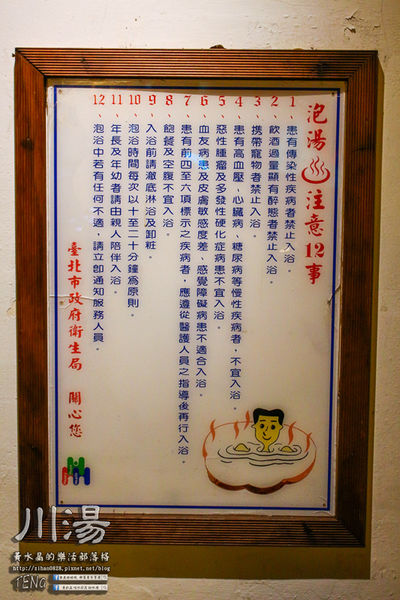 泡湯♨注意12事
1、患有傳染性疾病者禁止入浴。
2、飲酒過量顯有醉態者禁止入浴。
3、携帶寵物者禁止入浴。
4、患有高血壓、心臟病、糖尿病等慢性疾病者，不宜入浴。
5、惡性腫瘤及多發性硬化症病患不宜入浴。
6、血友病患及皮膚敏感度差、感覺障礙病患不適合入浴。
7、患有前四至六項標示之疾病者，應遵從醫護人員之指導後再行入浴。
8、飽餐及空腹不宜入浴。
9、入浴前請澈底淋浴及卸粧。
10、泡浴時間每次以十至二十分鐘為原則。
11、年長及年幼者請由親人陪伴入浴。
12、泡浴中若有任何不適，請立卽通知服務人員。
臺北市政府衛生局 關心您
川湯
黃水晶的樂活部落格
http://sihan0828.pixnet.net/blog
TENG